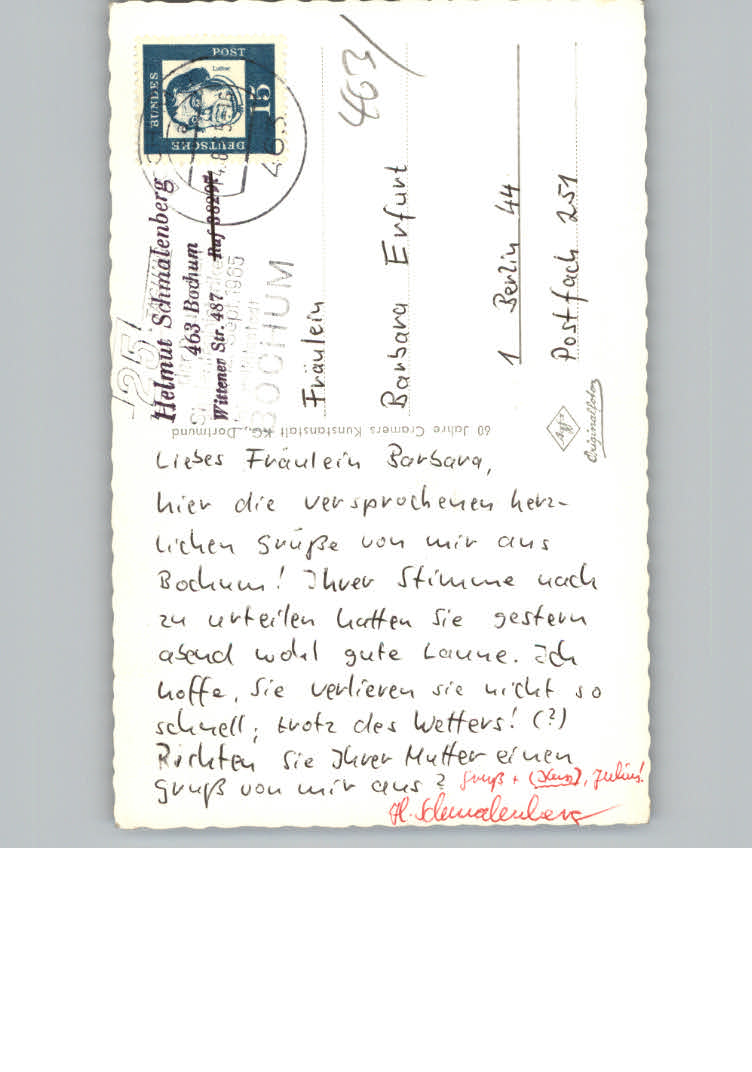 Liebes Fräulein Barbara,
hier die versprochenen herz-
lichen Grüße von mir aus
Bochum! Ihrer Stimme nach
zu urteilen hatten Sie gestern
abend wohl gute Laune. Ich
hoffe, Sie verlieren sie nicht so
schnell, trotz des Wetters! (?)
Richten Sie Ihrer Mutter einen
Gruß von mir aus?
Gruß + (Kuss), Julius!
H. Schmalenberg
60 Jahre Cramers Kunstanstalt KG., Dortmund
Helmut Schmalenberg
463 Bochum
Wittener Str. 487 Ruf 38297
25
Sept. 1965
BOCHUM
463
DEUTSCHE
BUNDES
POST
Luther
15
463/
Fräulein
Barbara Erfurt
1 Berlin 44
Postfach 251
Agfa
Originalfoto